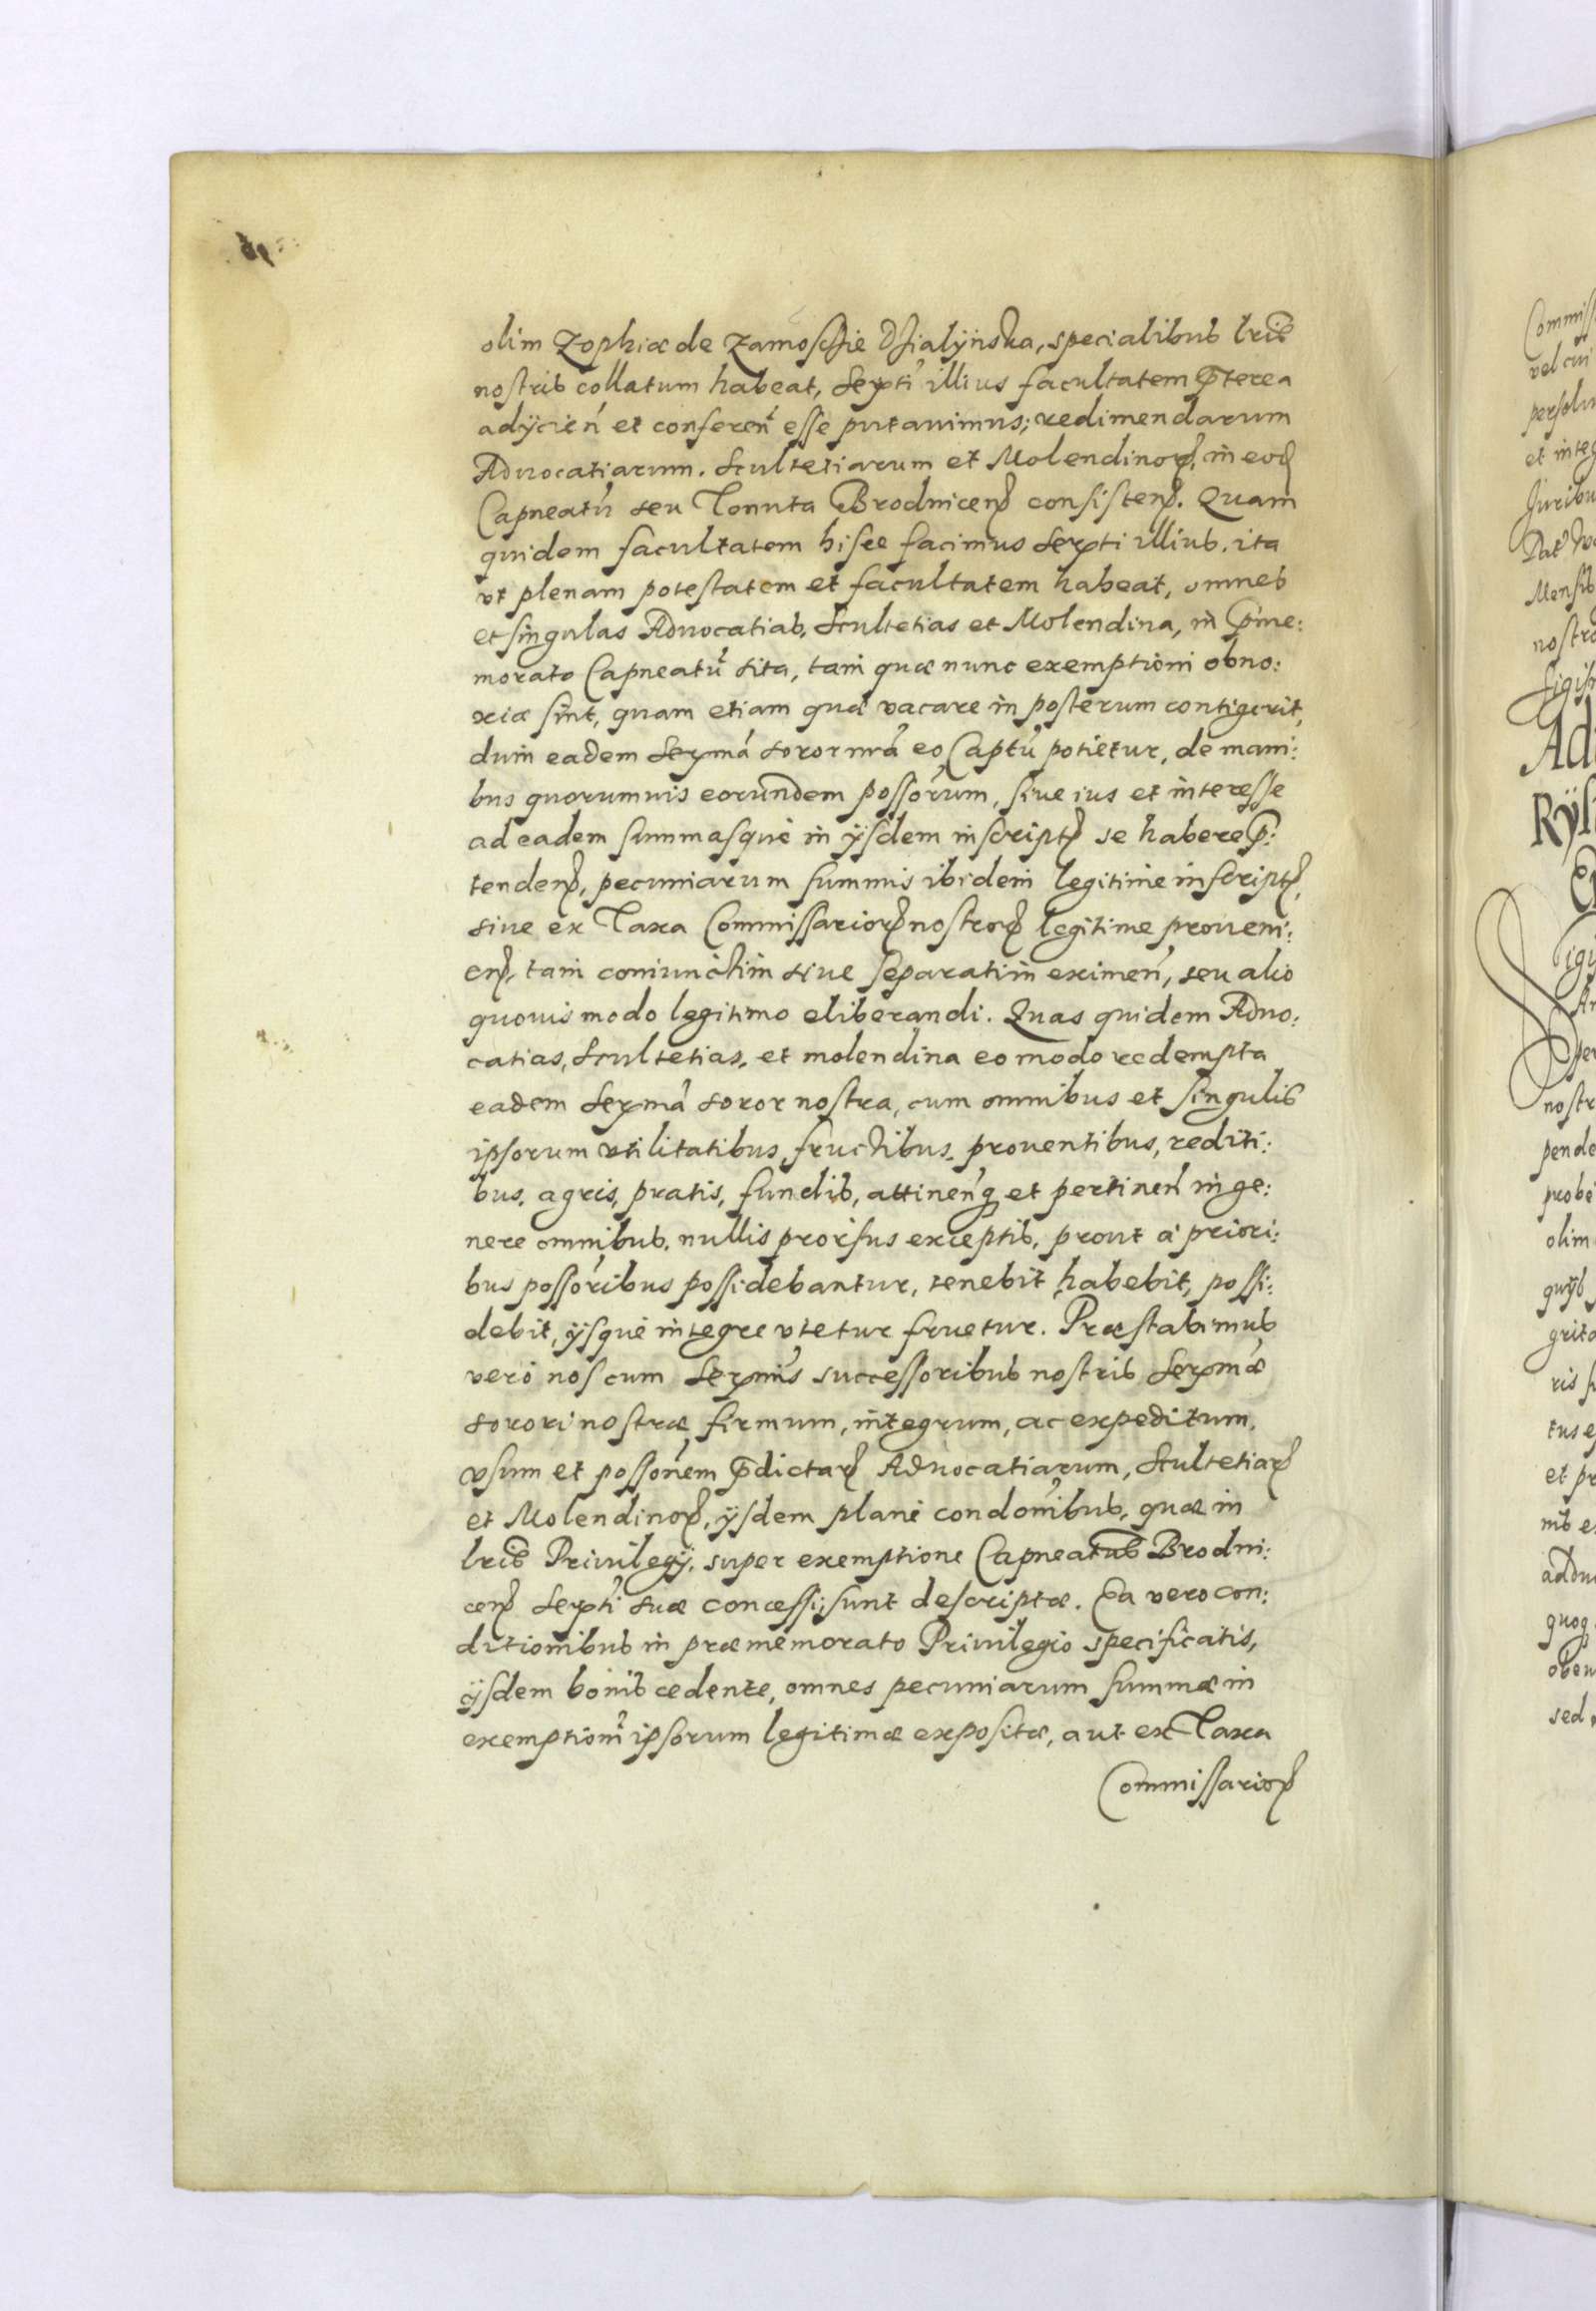 olim Zophiæ de Zamoschie Dzialÿnska, specialibus lris
nostris collatum habeat, Serti illius facultatem prterea
adÿcien et conferen esse putauimus; redimendarum
Aduocatiarum. Scultetiarum et Molendinor, in eod
Capneatu seu Tenuta Brodnicen consisten. Quam
quidem facultatem hisce facimus Serti illius. ita
vt plenam potestatem et facultatem habeat, omnes
et singulas Aduocatias, Scultetias et Molendina, in prme:
morato Capneatu sita, tam quæ nunc exemptioni obno:
xiæ sint, quam etiam quæ vacare in posterum contigerit,
dum eadem Serma soror nra eo Captu potietur, de mani:
bus quorumuis eorundem possorum, siue ius et interesse
ad eadem summasque in ÿsdem inscript se habere pr:
tenden, pecuniarum summis ibidem legitime inscript,
siue ex Taxa Commissarior nostror legitime proueni:
en, tam coniunctim siue separatim eximen, seu alio
quouis modo legitimo eliberandi. Quas quidem Aduo:
catias, Scultetias, et molendina eo modo redempta
eadem Serma soror nostra, cum omnibus et singulis
ipsorum vtilitatibus, fructibus, prouentibus, rediti:
bus, agris, pratis, fundis, attinenq et pertinen in ge:
nere omnibus, nullis prorsus exceptis, prout à priori:
bus possoribus possidebantur, tenebit, habebit, possi:
debit, ÿsque integre vtetur fruetur. Præstabimus
vero nos cum Sermis successoribus nostris Sermæ
sorori nostræ firmum, integrum, ac expeditum,
vsum et possonem prdictar Aduocatiarum, Scultetiar
et Molendinor, ÿsdem plane condonibus, quæ in
lris Priuilegÿ, super exemptione Capneatus Brodni:
cen Serti suæ concessi, sunt descriptæ. Ea vero con:
ditionibus in præmemorato Priuilegio specificatis,
ÿsdem bonis cedente, omnes pecuniarum summæ in
exemptioni ipsorum legitimæ expositæ, aut ex Taxa
Commissarior